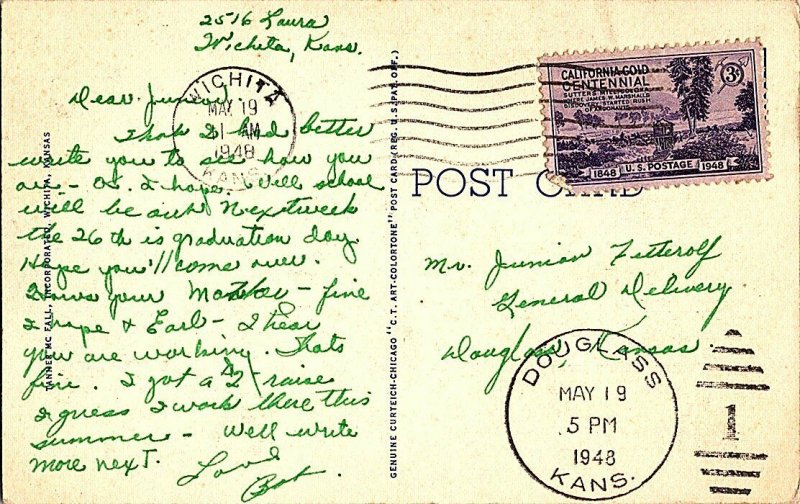 2516 Laura
Wichita, Kans.
Dear Junior,
Thot I had better
write you to see how you
are - OK I hope. Well school
will be out Next week
the 26th is graduation day.
Hope you'll come over.
Hows your Mother - fine
I hope & Earl - I hear
you are working. Thats
fine. I got a $2 raise
I guess I work there this
summer - Well write
more next.
Love
Bob.
WICHITA
MAY 19
11 AM
1948
KANS.
TANNER MC FALL, INCORPORATED, WICHITA, KANSAS
GENUINE CURTEICH-CHICAGO "C.T. ART-COLORTONE" POST CARD (REG. U.S. PAT. OFF.)
CALIFORNIA GOLD
CENTENNIAL
3¢
SUTTER'S MILL, COLOMA
WHERE JAMES W. MARSHALL'S
DISCOVERY STARTED RUSH
1848 U.S. POSTAGE 1948
POST CARD
Mr. Junior Fetterolf
General Delivery
Douglass, Kansas
DOUGLASS
MAY 19
5 PM
1948
KANS.
1